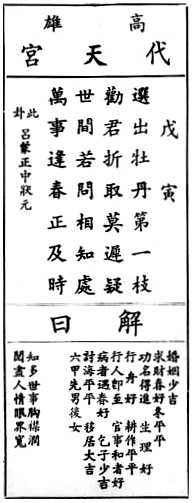 高雄
代天宮
戊寅
選出牡丹第一枝
勸君折取莫遲疑
世間若問相知處
萬事逢春正及時
此卦 呂蒙正中狀元
解曰
婚姻少吉
求財春好冬平平
功名得進 生理好
行舟好 耕作平平
行人即至 官事和者好
病者遇春好 乞子少吉
討海平平 移居大吉
六甲先男後女
知多世事胸襟濶
閱盡人情眼界寬